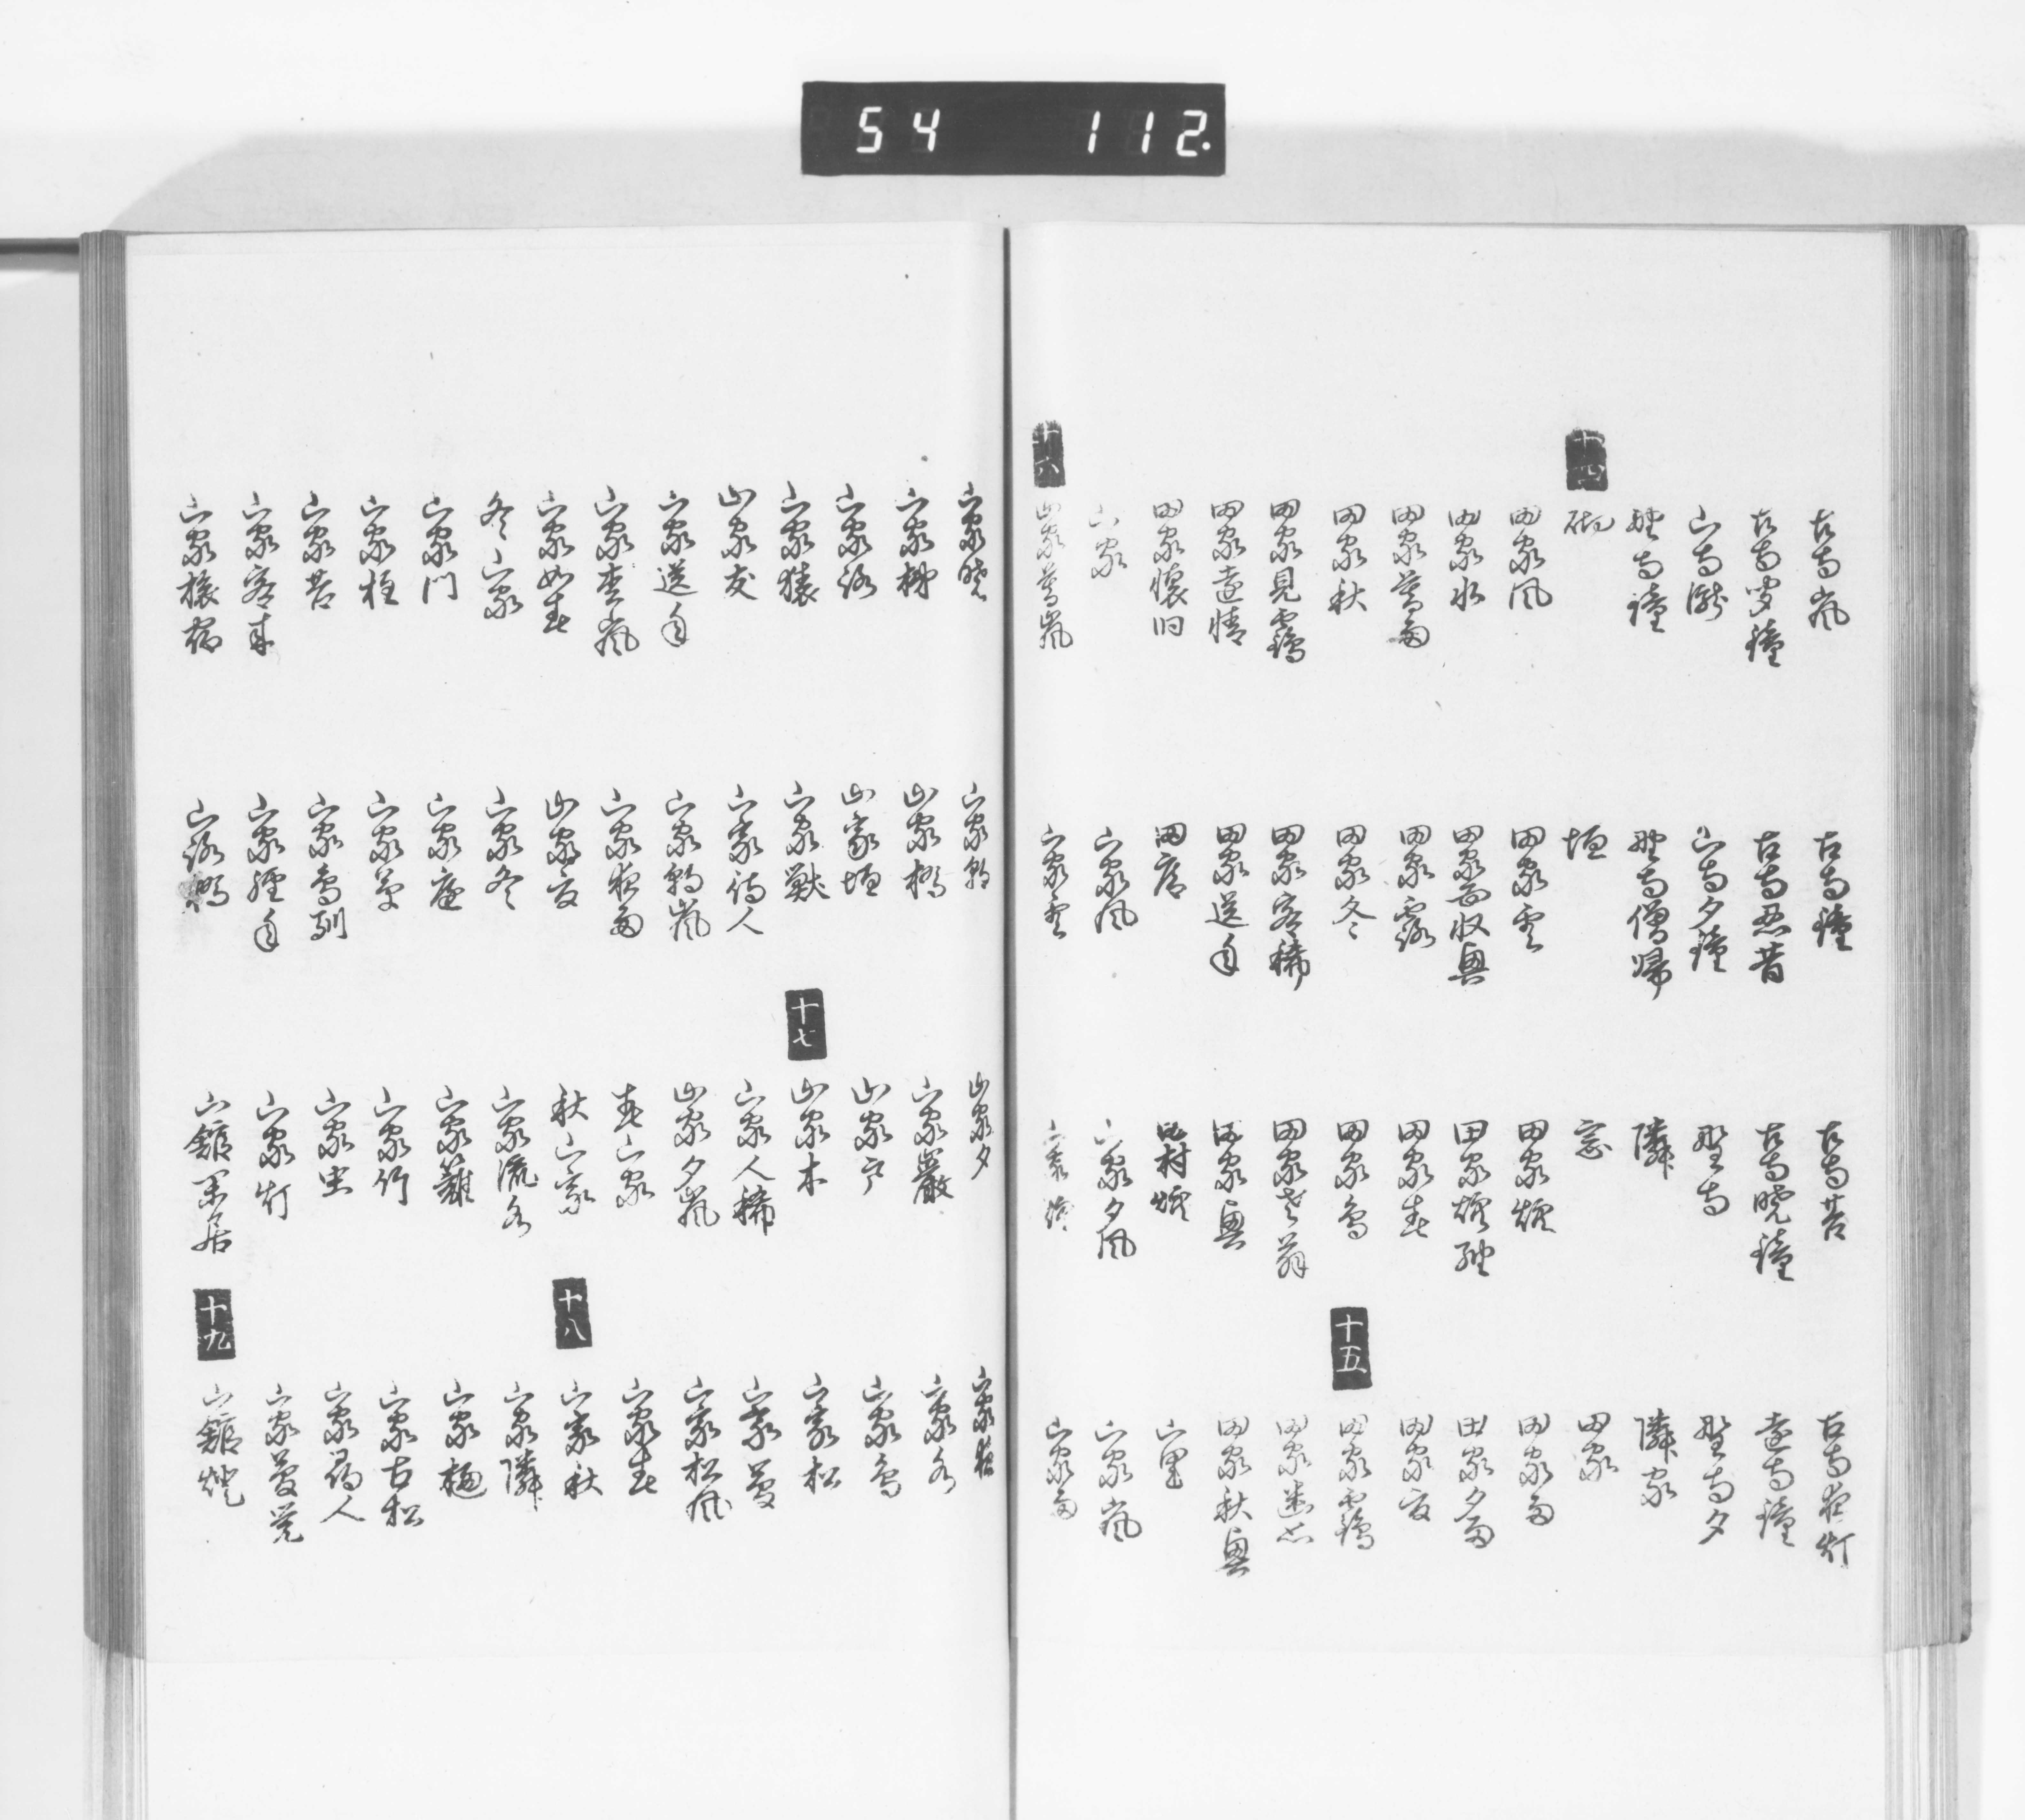 54 112
古寺嵐 古寺鐘 古寺苔 古寺夜灯
古寺 鐘 古寺忍昔 古寺暁鐘 遠寺鐘
山寺瀧 山寺夕鐘 野寺 野寺夕
野寺鐘 野寺僧帰 隣 隣家
十四 砌 垣 窓 田家
田家風 田家雲 田家煙 田家雨
田家水 田家 収興 田家煙細 田家夕雨
田家暮雨 田家露 田家春 田家夏
田家秋 田家冬 田家鳥 十五 田家
田家見 田家客稀 田家老翁 田家
田家遠情 田家送年 田家興 田家秋興
田家懐旧 田 田村煙 山里
山家 山家風 山家夕風 山家嵐
十六 山家暮嵐 山家雲 山家煙 山家雨
山家暁 山家朝 山家夕 山家夜
山家梯 山家橋 山家巌 山家水
山家路 山家垣 山家戸 山家鳥
山家猿 山家獣 十七 山家木 山家松
山家友 山家待人 山家人稀 山家夢
山家送年 山家朝嵐 山家夕嵐 山家松風
山家 嵐 山家夜雨 春山家 山家春
山家如春 山家夏 秋山家 十八 山家秋
冬山家 山家冬 山家流水 山家隣
山家門 山家庭 山家籬 山家樋
山家柱 山家草 山家竹 山家古松
山家苔 山家鳥馴 山家虫 山家尋人
山家客来 山家経年 山家灯 山家夢覚
山家 宿 山路橋 山館 居 十九 山館燈